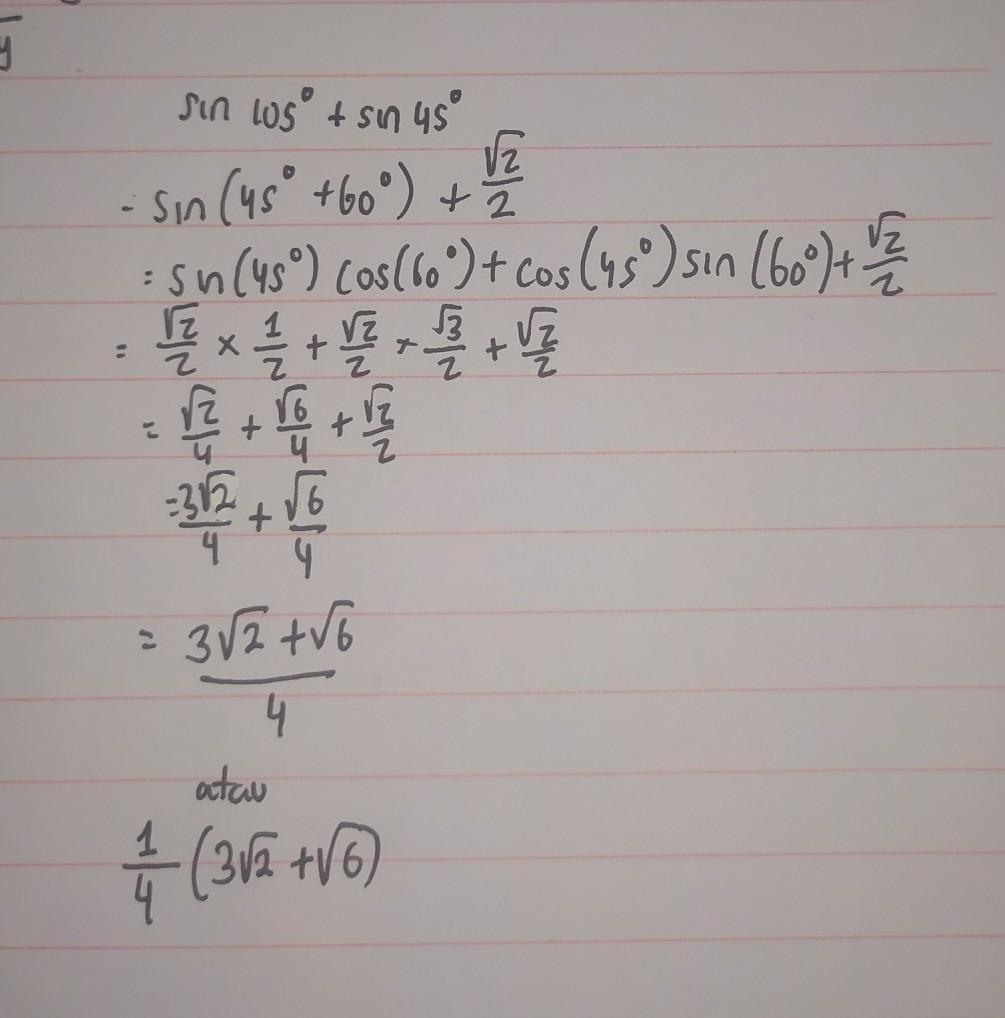 y
sin 105° + sin 45°
= sin (45° + 60°) + √2/2
= sin(45°) cos(60°) + cos(45°) sin(60°) + √2/2
= √2/2 × 1/2 + √2/2 × √3/2 + √2/2
= √2/4 + √6/4 + √2/2
= 3√2/4 + √6/4
= (3√2 + √6)/4
atau
1/4 (3√2 + √6)